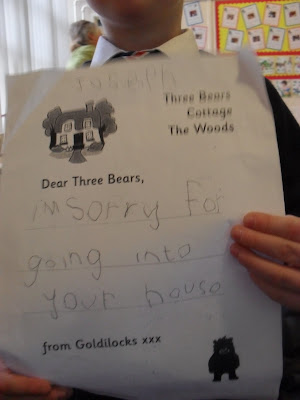 Joseph
Three Bears
Cottage
The Woods
Dear Three Bears,
im sorry for
going into
your house
from Goldilocks xxx